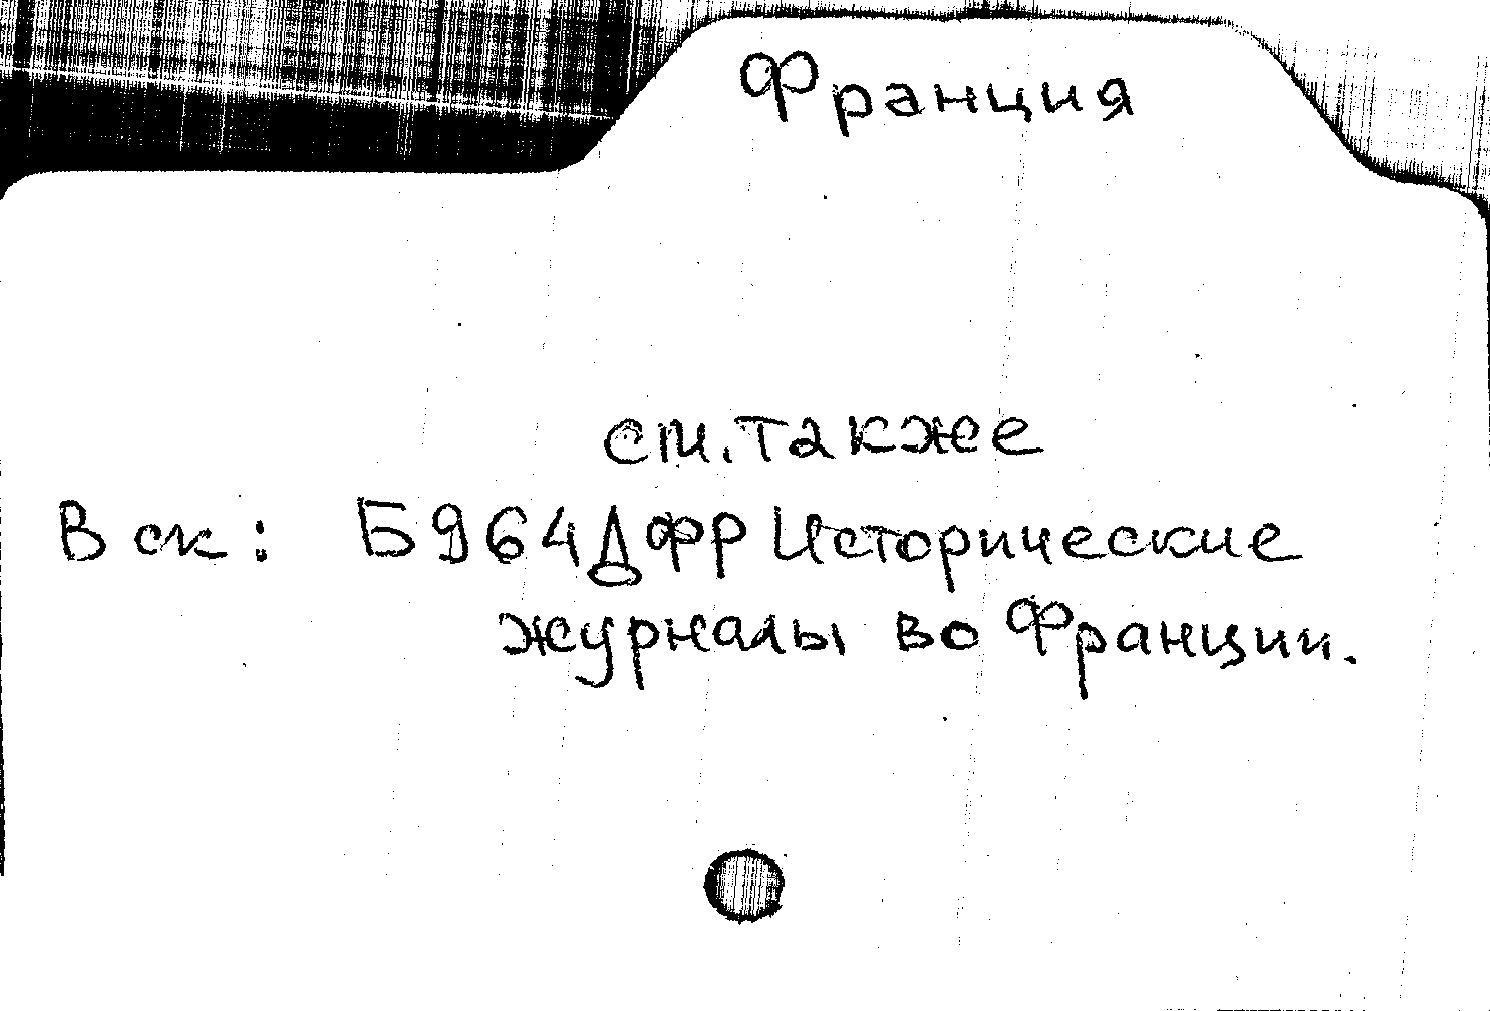 Франция
см. также
В ск: Б964Дфр Исторические
журналы во Франции.